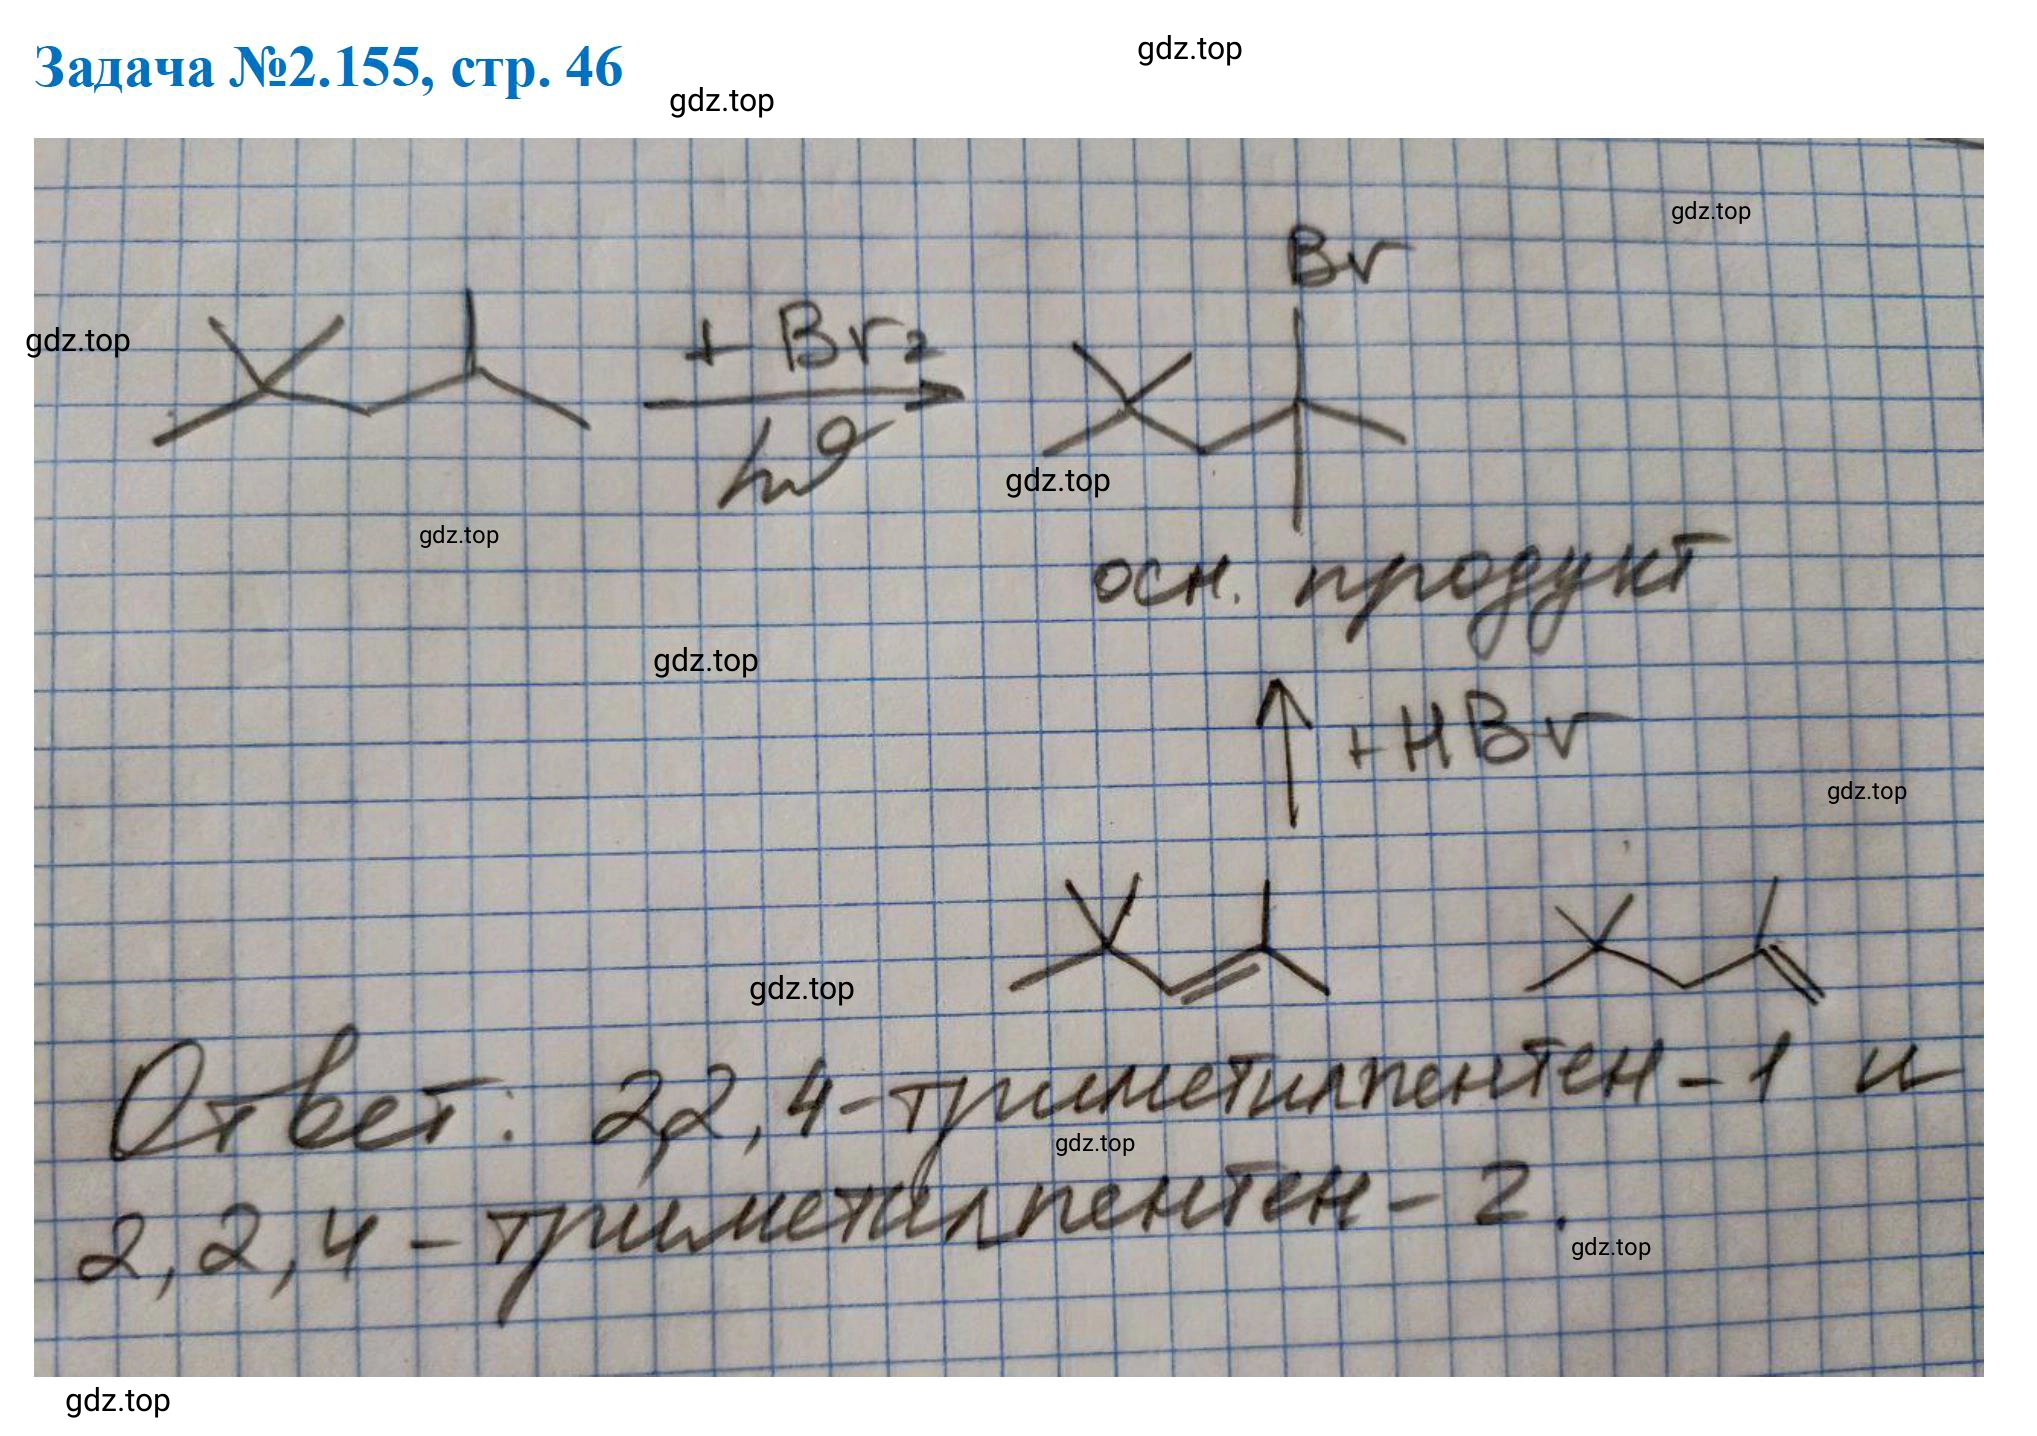 Задача №2.155, стр. 46
gdz.top
gdz.top
gdz.top
Br
gdz.top
+ Br2
hϑ
gdz.top
gdz.top
осн. продукт
gdz.top
+HBr
gdz.top
gdz.top
Ответ: 2,2,4-триметилпентен-1 и
gdz.top
2,2,4-триметилпентен-2.
gdz.top
gdz.top